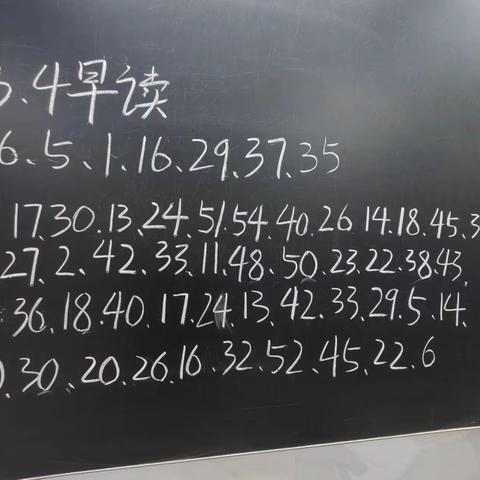 .4早读
6、5、1、16、29、37、35
17、30、13、24、51、54、40、26 14、18、45、3
27、2、42、33、11、48、50、23、22、38、43、
36、18、40、17、24、13、42、33、29、5、14、
、30、20、26、16、32、52、45、22、6